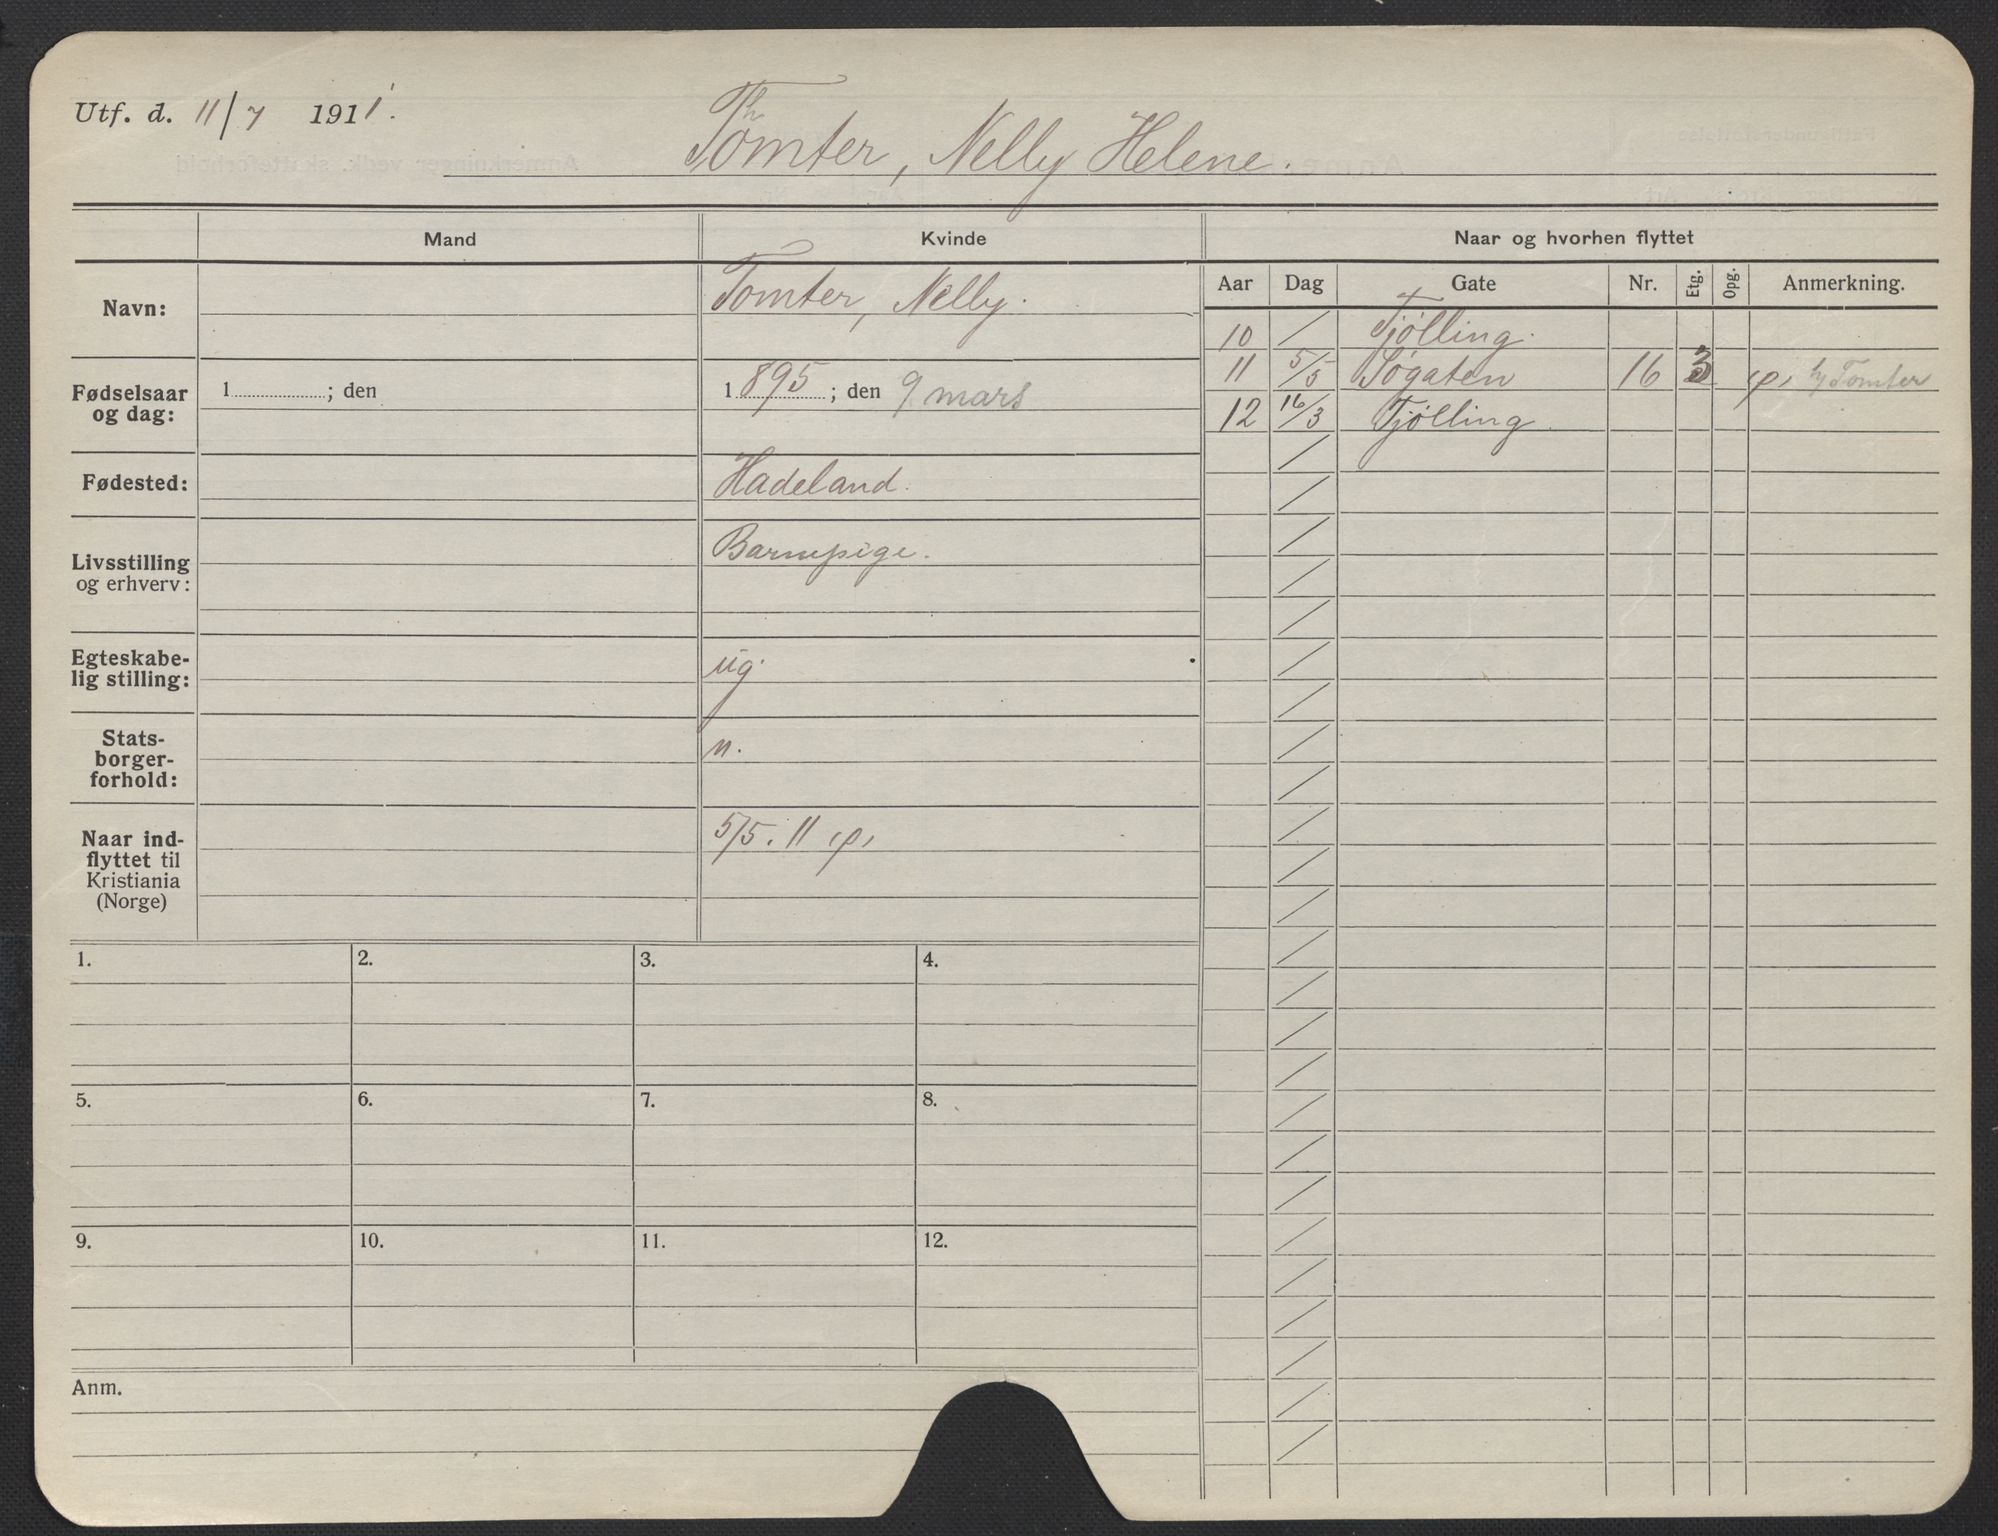 Utf. d. 11/7 1911.
Th
Tomter, Nelly Helene.
Mand
Kvinde
Naar og hvorhen flyttet
Aar Dag Gate Nr. Etg. Opg. Anmerkning.
Navn:
Tomter, Nelly.
Fødselsaar
og dag:
1 ; den
1895 ; den 9 mars
Fødested:
Hadeland.
Livsstilling
og erhverv:
Barnepige.
Egteskabe-
lig stilling:
ug.
Stats-
borger-
forhold:
n.
Naar ind-
flyttet til
Kristiania
(Norge)
5/5. 11
10 / Tjølling.
11 5/5 Søgaten 16 3 Tomter
12 16/3 Tjølling.
1. 2. 3. 4.
5. 6. 7. 8.
9. 10. 11. 12.
Anm.